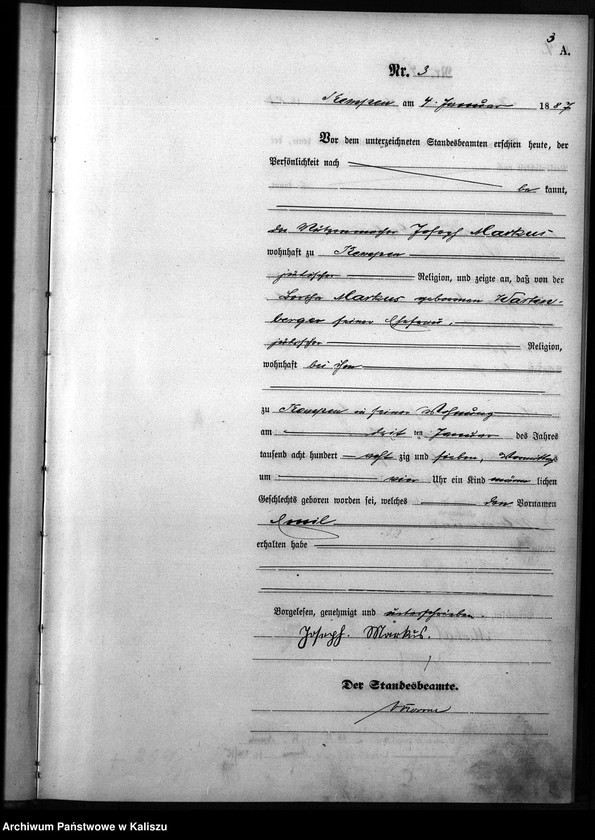 3
A.
Nr. 3
Kempen am 4. Januar 1887
Vor dem unterzeichneten Standesbeamten erschien heute, der
Persönlichkeit nach
be kannt,
der Mützenmacher Joseph Markus
wohnhaft zu Kempen
jüdischer Religion, und zeigte an, daß von der
Markus geborenen Warten-
berger seiner Ehefrau,
jüdischer Religion,
wohnhaft bei ihm
zu Kempen in seiner Wohnung
am ten Januar des Jahres
tausend acht hundert acht zig und sieben, Vormittags
um vier Uhr ein Kind männ lichen
Geschlechts geboren worden sei, welches den Vornamen
Emil
erhalten habe
Vorgelesen, genehmigt und unterschrieben.
Joseph. Markus.
Der Standesbeamte.
Archiwum Państwowe w Kaliszu